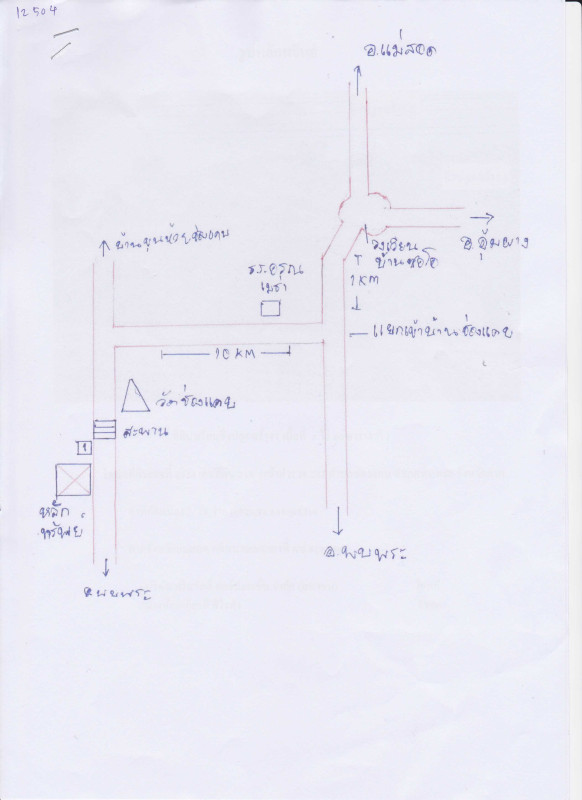 12504
อ.แม่สอด
บ้านขุนห้วยช่องแคบ
อ.อุ้มผาง
วงเวียน
บ้านซอโอ
ร.ร.อรุณ
เมธา
1 KM
แยกเข้าบ้านช่องแคบ
10 KM
วัดช่องแคบ
สะพาน
1
หลัก
ทรัพย์
อ.พบพระ
อ.พบพระ